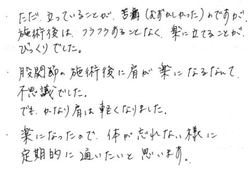 ただ、立っていることが、苦痛（むずかしかった）のですが
施術後は、フラフラすることなく、楽に立てることが
びっくりでした。
・股関節の施術後に肩が楽になるなんて、
不思議でした。
でも、かなり肩は軽くなりました。
・楽になったので、体が忘れない様に
定期的に通いたいと思います。